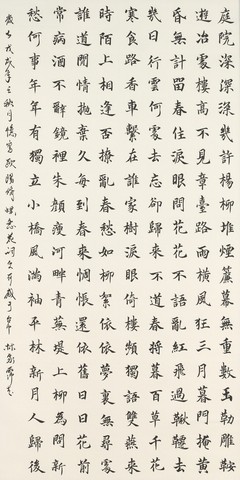 庭院深深深幾許楊柳堆煙簾幕無重數玉勒雕鞍
遊冶處樓高不見章臺路雨橫風狂三月暮門掩黃
昏無計留春住淚眼問花花不語亂紅飛過鞦韆去
幾日行雲何處去忘卻歸來不道春將暮百草千花
寒食路香車繫在誰家樹淚眼倚樓頻獨語雙燕來
時陌上相逢否撩亂春愁如柳絮依依夢裏無尋處
誰道閒情拋棄久每到春來惆悵還依舊日日花前
常病酒不辭鏡裡朱顏瘦河畔青蕪堤上柳為問新
愁何事年年有獨立小橋風滿袖平林新月人歸後
戊戌年之秋月